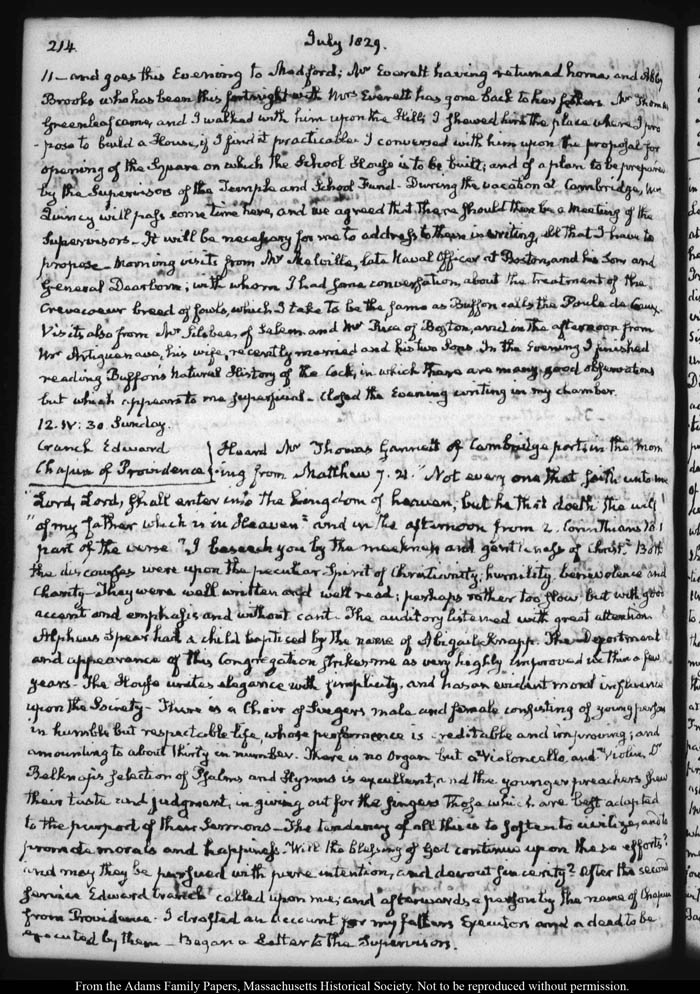 214
July 1829.
11 — and goes this Evening to Medford; Mr Everett having returned home, and Abby
Brooks who has been this fortnight with Mrs Everett has gone back to her fathers. Mr Thomas
Greenleaf came, and I walked with him upon the Hill; I shewed him the place where I pro
-pose to build a House, if I find it practicable. I conversed with him upon the proposal for
opening of the Square on which the School House is to be built; and of a plan to be prepared
by the Supervisors of the Temple and School Fund. During the vacation at Cambridge, Mr
Quincy will pass some time here, and we agreed that there should then be a meeting of the
Supervisors — It will be necessary for me to address to them in writing, all that I have to
propose — Morning visits from Mr Melville, late Naval Officer at Boston, and his Son and
General Dearborn; with whom I had some conversation, about the treatment of the
Crevecoeur breed of fowls, which I take to be the same as Buffon calls the Poule de Caux.
Visits also from Mr Silsbee, of Salem and Mr Rice of Boston, and in the afternoon from
Mr his wife, recently married and his two Sons. In the Evening I finished
reading Buffon's Natural History of the Cock, in which there are many good observations
but which appears to me superficial — Closed the Evening writing in my chamber.
12. IV: 30. Sunday.
Cranch Edward
Chapin of Providence
Heard Mr Thomas Gannett of Cambridge port in the morn
-ing from Matthew 7. 21. "Not every one that saith unto me
"Lord, Lord, shall enter into the kingdom of heaven, but he that doeth the will
"of my father which is in Heaven" and in the afternoon from 2. Corinthians 10. 1
part of the verse "I beseech you by the meekness and gentleness of Christ." Both
the discourses were upon the peculiar Spirit of Christianity, humility, benevolence and
Charity — They were well written and well read; perhaps rather too slow but with good
accent and emphasis and without cant. The auditory listened with great attention.
Alpheus Spear had a child baptized by the name of Abigail Knapp. The deportment
and appearance of this Congregation strikes me as very highly improved within a few
years — The House unites elegance with simplicity, and has an evident moral influence
upon the Society — There is a Choir of Singers male and female consisting of young persons
in humble but respectable life, whose performance is creditable and improving; and
amounting to about thirty in number. There is no Organ but a Violoncello, and Violin. Dr
Belknap's selection of Psalms and Hymns is excellent, and the younger preachers shew
their taste and judgment, in giving out for the singers those which are best adapted
to the purport of their Sermons — The tendency of all this is to soften to civilize, and to
promote morals and happiness. Will the blessing of God continue upon these efforts?
and may they be pursued with pure intention, and devout sincerity? After the second
service Edward Cranch called upon me; and afterwards, a person by the name of Chapin
from Providence. I drafted an account for my fathers Executors and a deed to be
executed by them — Began a Letter to the Supervisors.
From the Adams Family Papers, Massachusetts Historical Society. Not to be reproduced without permission.